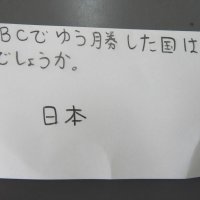 BCでゆう勝した国は
でしょうか。
日本